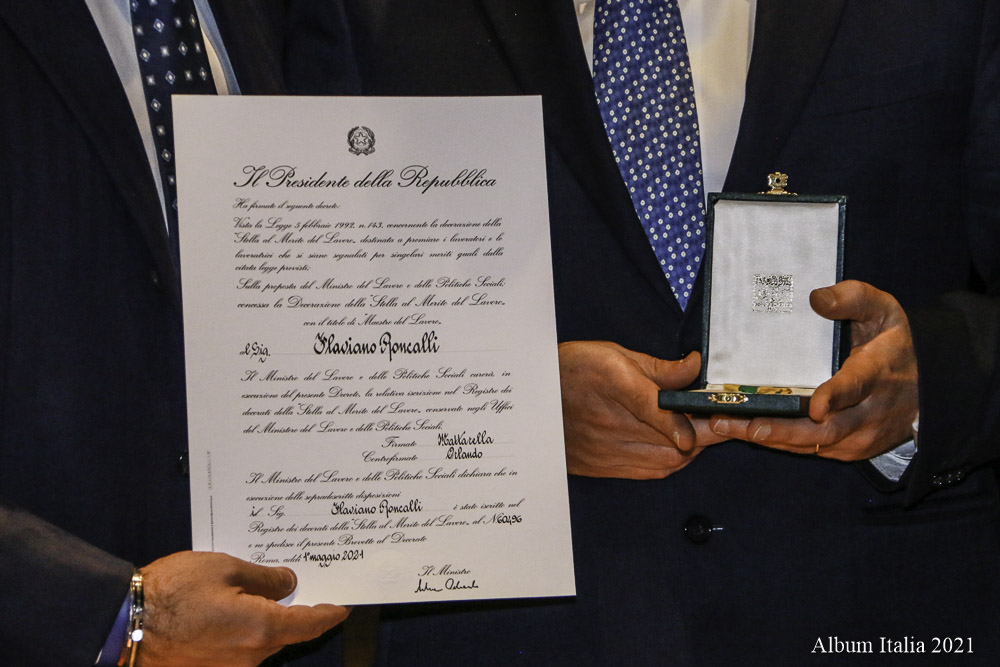 Il Presidente della Repubblica
Ha firmato il seguente decreto:
Vista la Legge 5 febbraio 1992, n.143, concernente la decorazione della
"Stella al Merito del Lavoro", destinata a premiare i lavoratori e le
lavoratrici che si siano segnalati per singolari meriti quali dalla
citata legge previsti;
Sulla proposta del Ministro del Lavoro e delle Politiche Sociali;
concessa la Decorazione della "Stella al Merito del Lavoro"
con il titolo di "Maestro del Lavoro"
al Sig. Flaviano Roncalli
Il Ministro del Lavoro e delle Politiche Sociali curerà, in
esecuzione del presente Decreto, la relativa iscrizione nel Registro dei
decorati della Stella al Merito del Lavoro, conservato negli Uffici
del Ministero del Lavoro e delle Politiche Sociali.
Firmato Mattarella
Controfirmato Orlando
Il Ministro del Lavoro e delle Politiche Sociali dichiara che in
esecuzione delle sopradescritte disposizioni
il Sig. Flaviano Roncalli è stato iscritto nel
Registro dei decorati della "Stella al Merito del Lavoro" al N.60496
e ne spedisce il presente Brevetto al Decorato
Roma, addì 1° maggio 2021
Il Ministro
Album Italia 2021